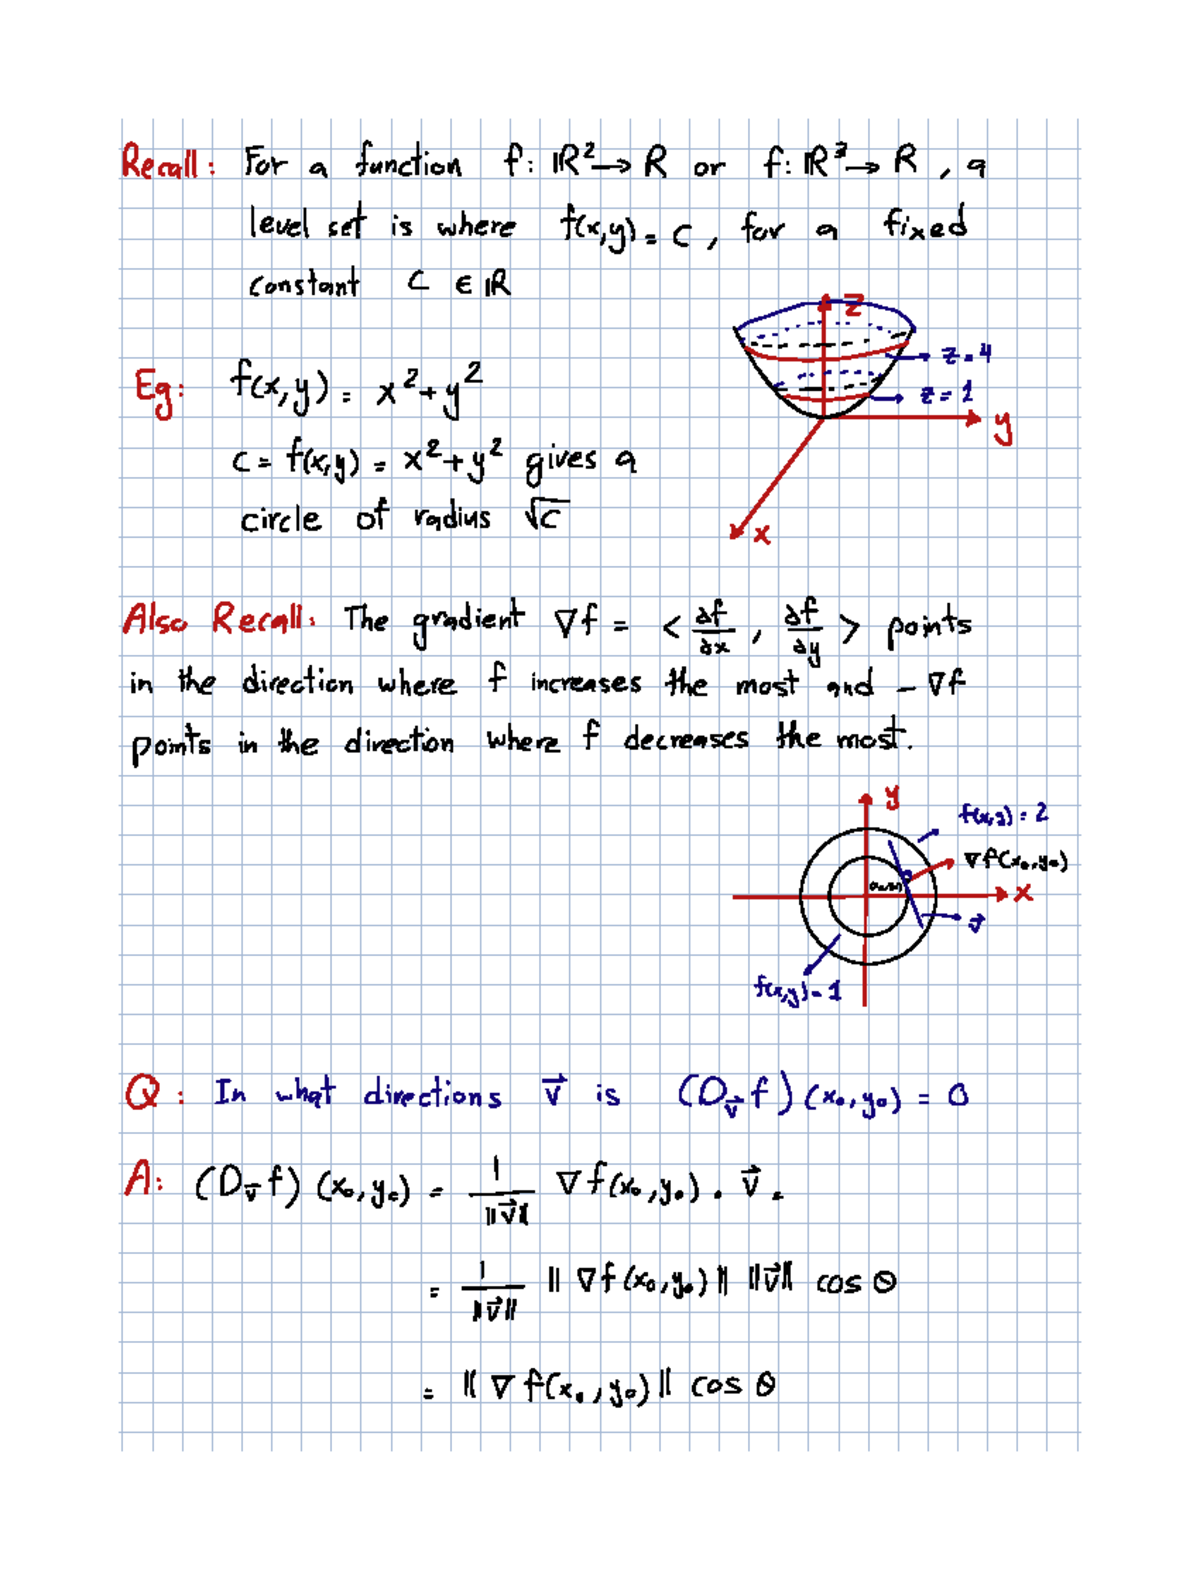 Recall: For a function f: ℝ² → R or f: ℝ³ → R , a
level set is where f(x,y) = C , for a fixed
constant C ∈ ℝ
z
z = 4
z = 1
y
x
Eg: f(x,y) = x² + y²
C = f(x,y) = x² + y² gives a
circle of radius √C
Also Recall: The gradient ∇f = < ∂f/∂x , ∂f/∂y > points
in the direction where f increases the most and - ∇f
points in the direction where f decreases the most.
y
f(x,y) = 2
∇f(x₀,y₀)
(x₀,y₀)
x
v⃗
f(x,y) = 1
Q: In what directions v⃗ is (D_v⃗ f)(x₀,y₀) = 0
A: (D_v⃗ f)(x₀,y₀) = 1/‖v⃗‖ ∇f(x₀,y₀) · v⃗ =
= 1/‖v⃗‖ ‖∇f(x₀,y₀)‖ ‖v⃗‖ cos θ
= ‖∇f(x₀,y₀)‖ cos θ